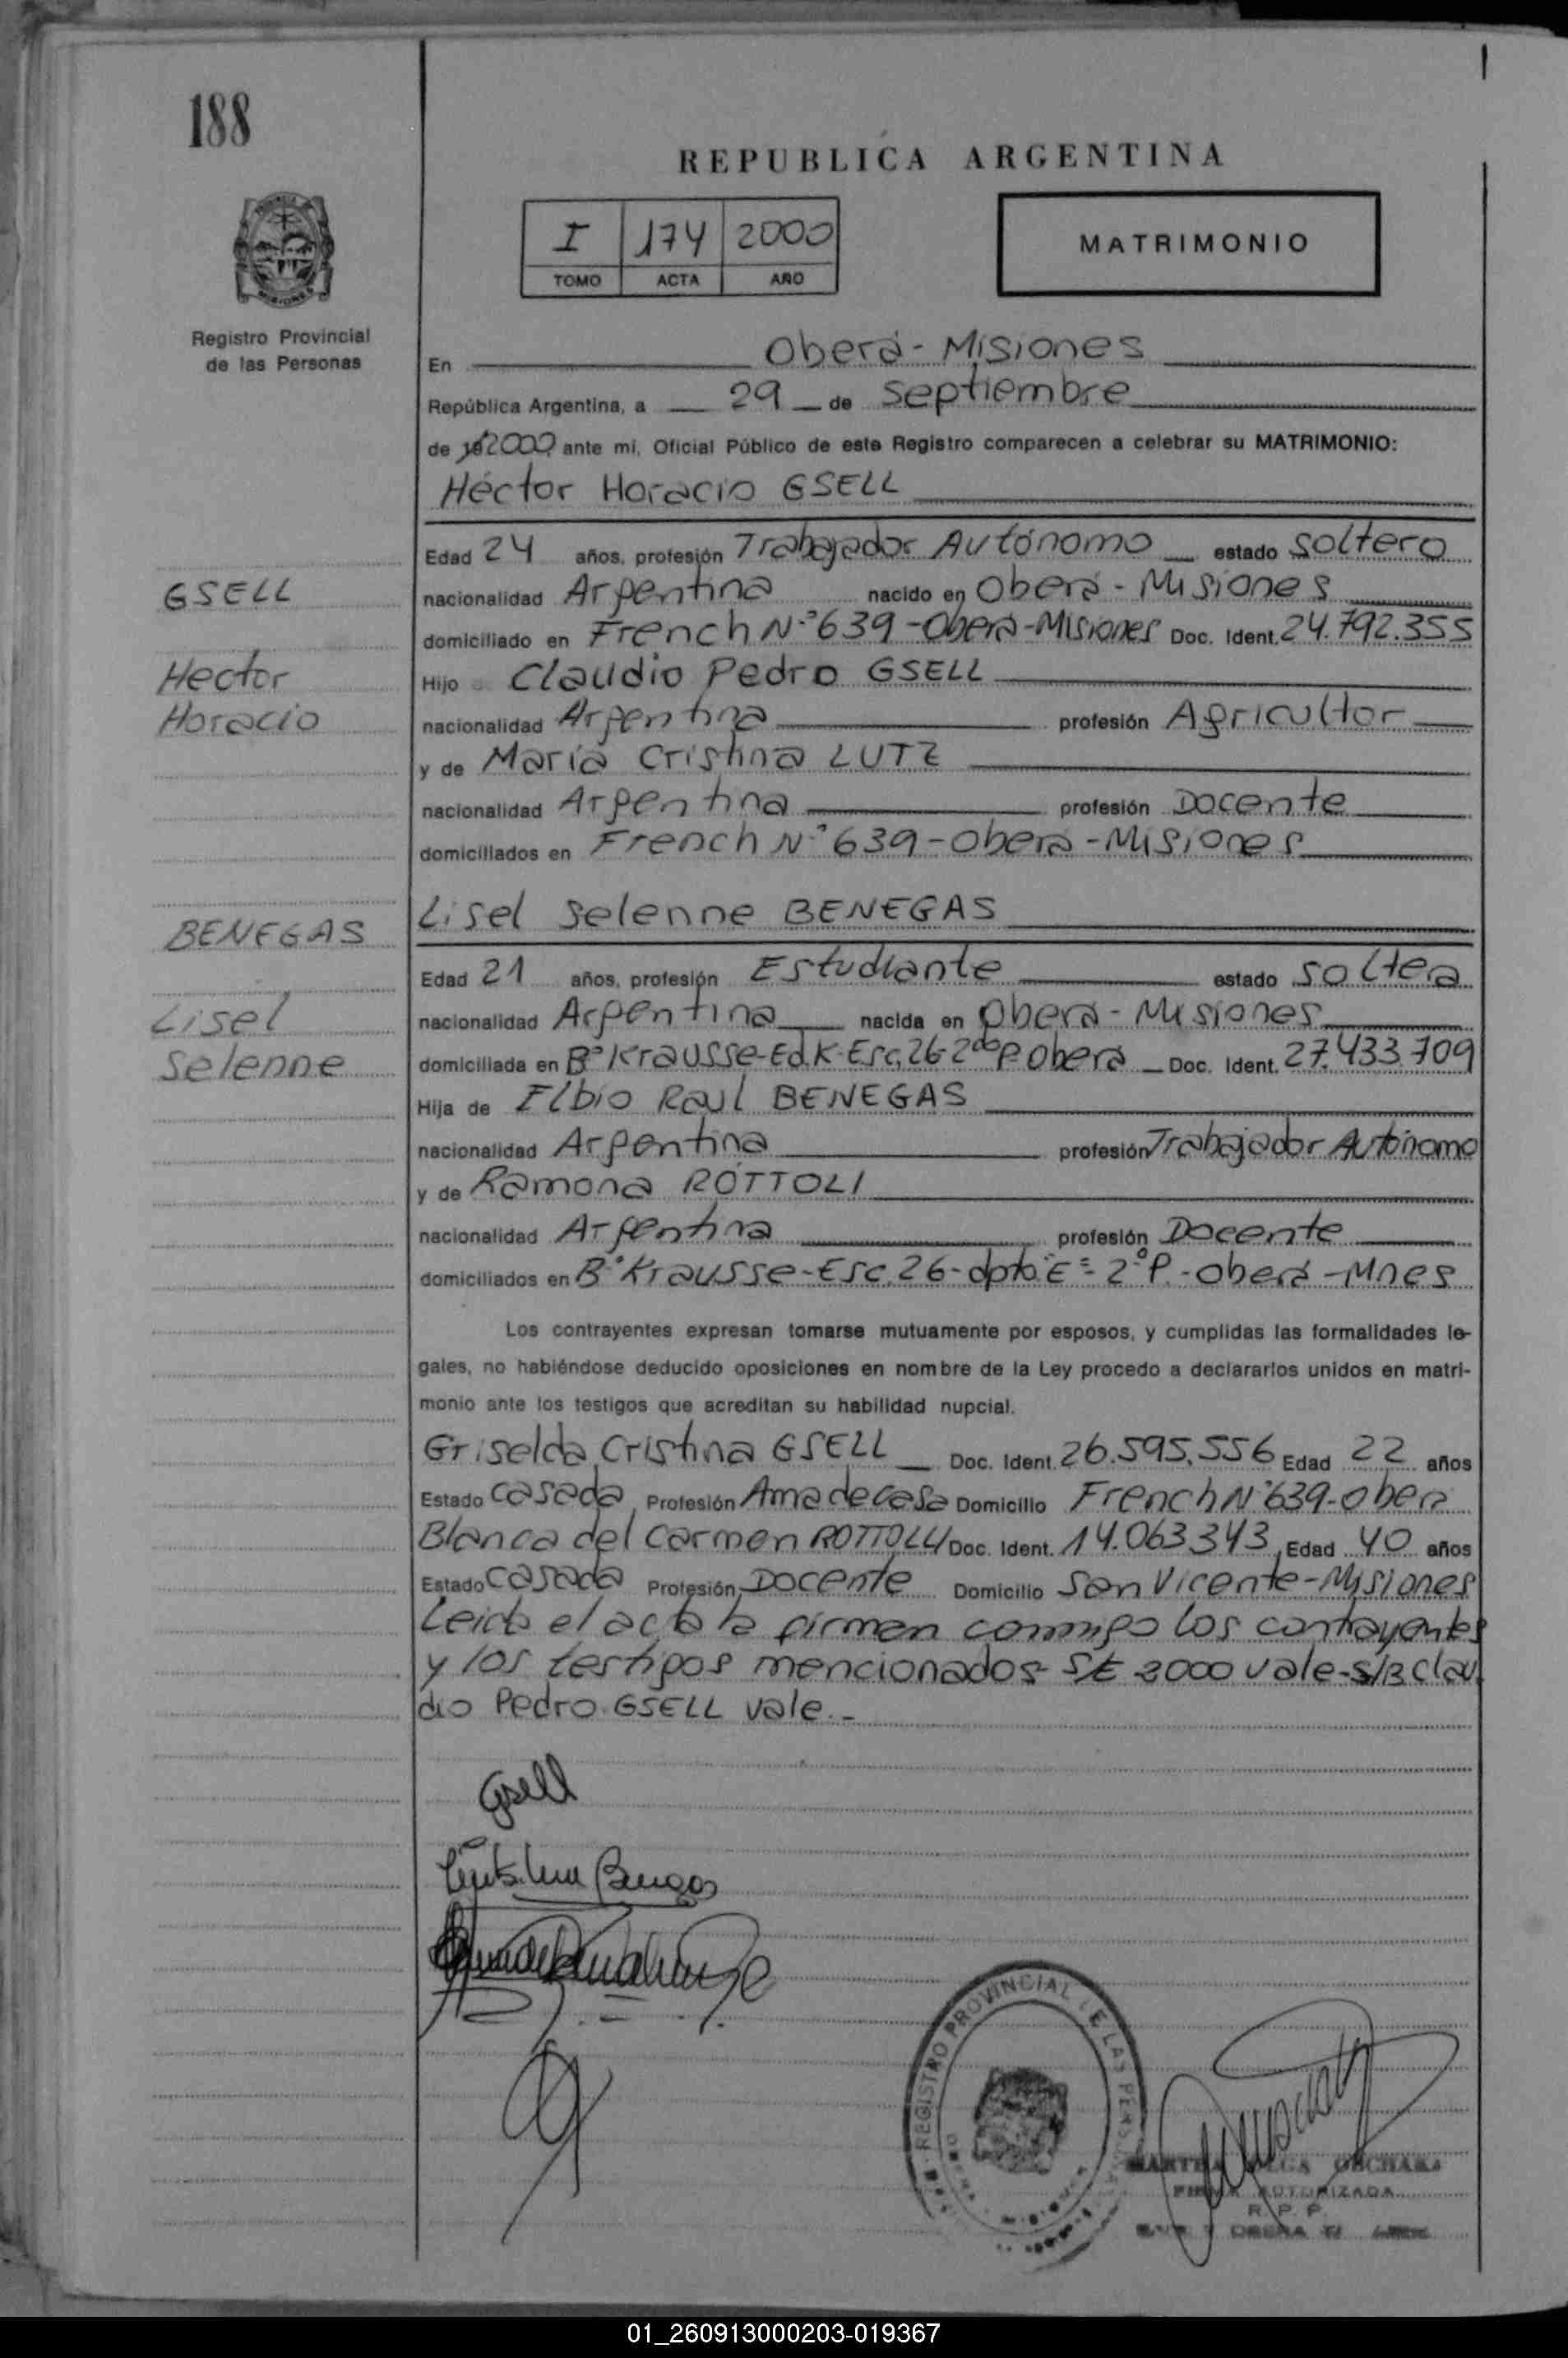 188
REPUBLICA ARGENTINA
I 174 2000
TOMO ACTA AÑO
MATRIMONIO
Registro Provincial
de las Personas
En Oberá - Misiones
República Argentina, a 29 de Septiembre
de 2000 ante mi, Oficial Público de este Registro comparecen a celebrar su MATRIMONIO:
Héctor Horacio GSELL
Edad 24 años, profesión Trabajador Autónomo estado soltero
GSELL
nacionalidad Argentina nacido en Oberá - Misiones
domiciliado en French N° 639 - Oberá - Misiones Doc. Ident. 24.792.355
Hector
Hijo Claudio Pedro GSELL
Horacio
nacionalidad Argentina profesión Agricultor
y de María Cristina LUTZ
nacionalidad Argentina profesión Docente
domiciliados en French N° 639 - Oberá - Misiones
Lisel Selenne BENEGAS
BENEGAS
Edad 21 años, profesión Estudiante estado soltera
Lisel
nacionalidad Argentina nacida en Oberá - Misiones
Selenne
domiciliada en B° Krausse - Ed. K - Esc. 26 - 2do P. Oberá Doc. Ident. 27.433.709
Hija de Elbio Raul BENEGAS
nacionalidad Argentina profesión Trabajador Autónomo
y de Ramona ROTTOLI
nacionalidad Argentina profesión Docente
domiciliados en B° Krausse - Esc. 26 - dpto. "E" - 2° P. - Oberá - Mnes
Los contrayentes expresan tomarse mutuamente por esposos, y cumplidas las formalidades le-
gales, no habiéndose deducido oposiciones en nombre de la Ley procedo a declararlos unidos en matri-
monio ante los testigos que acreditan su habilidad nupcial.
Griselda Cristina GSELL Doc. Ident. 26.595.556 Edad 22 años
Estado casada Profesión Ama de casa Domicilio French N° 639 - Oberá
Blanca del Carmen ROTTOLLI Doc. Ident. 14.063.343 Edad 40 años
Estado casada Profesión Docente Domicilio San Vicente - Misiones
Leida el acta la firman conmigo los contrayentes
y los testigos mencionados - S/E 2000 vale - S/B Clau
dio Pedro GSELL vale. -
Gsell
REGISTRO PROVINCIAL DE LAS
FIRMA AUTORIZADA
R. P. P.
01_260913000203-019367